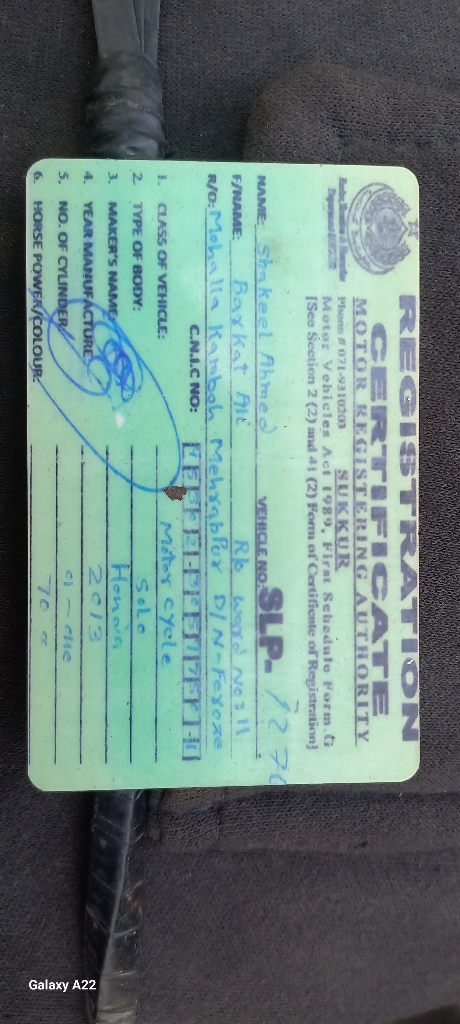 REGISTRATION
CERTIFICATE
MOTOR REGISTERING AUTHORITY
SUKKUR
Phone # 071-9310203
Motor Vehicles Act 1989, First Schedule Form G
[See Section 2 (2) and 41 (2) Form of Certificate of Registration]
VEHICLE NO. SLP.
NAME: Shakeel Ahmed
F/NAME: Barkat Ali R/o Ward No: 11
R/O: Mohalla Kamboh Mehrabpur D/N-Feroze
C.N.I.C NO:
1. CLASS OF VEHICLE: Motor cycle
2. TYPE OF BODY: Solo
3. MAKER'S NAME: Honda
4. YEAR MANUFACTURE: 2013
5. NO. OF CYLINDER: 01-one
6. HORSE POWER/COLOUR: 70 cc
Galaxy A22